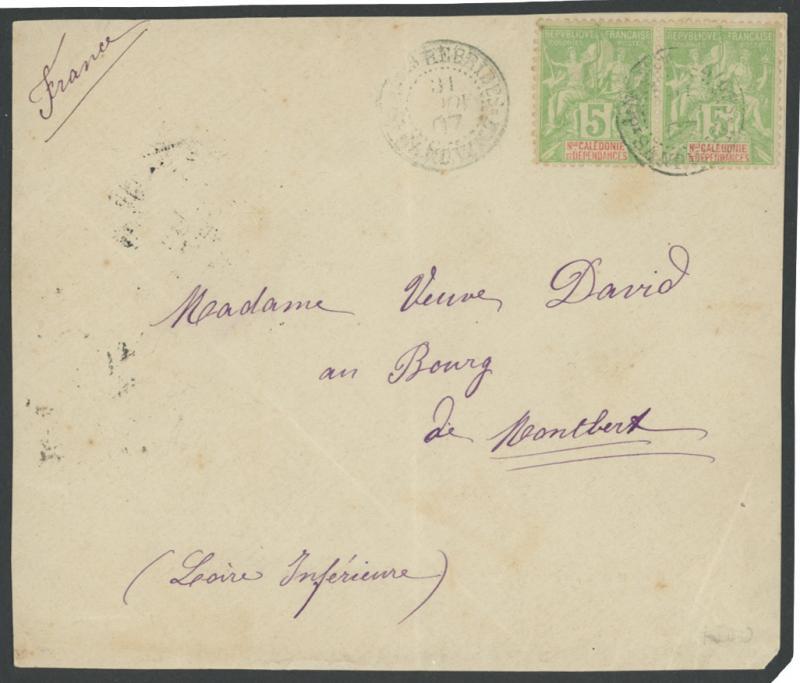 France
HEBRIDES
31
07
REPVBLIQVE FRANÇAISE
COLONIES POSTES
5
Nlle CALÉDONIE
ET DÉPENDANCES
REPVBLIQVE FRANÇAISE
COLONIES POSTES
5
Nlle CALÉDONIE
ET DÉPENDANCES
Madame Veuve David
au Bourg
de Montbert
(Loire Inférieure)